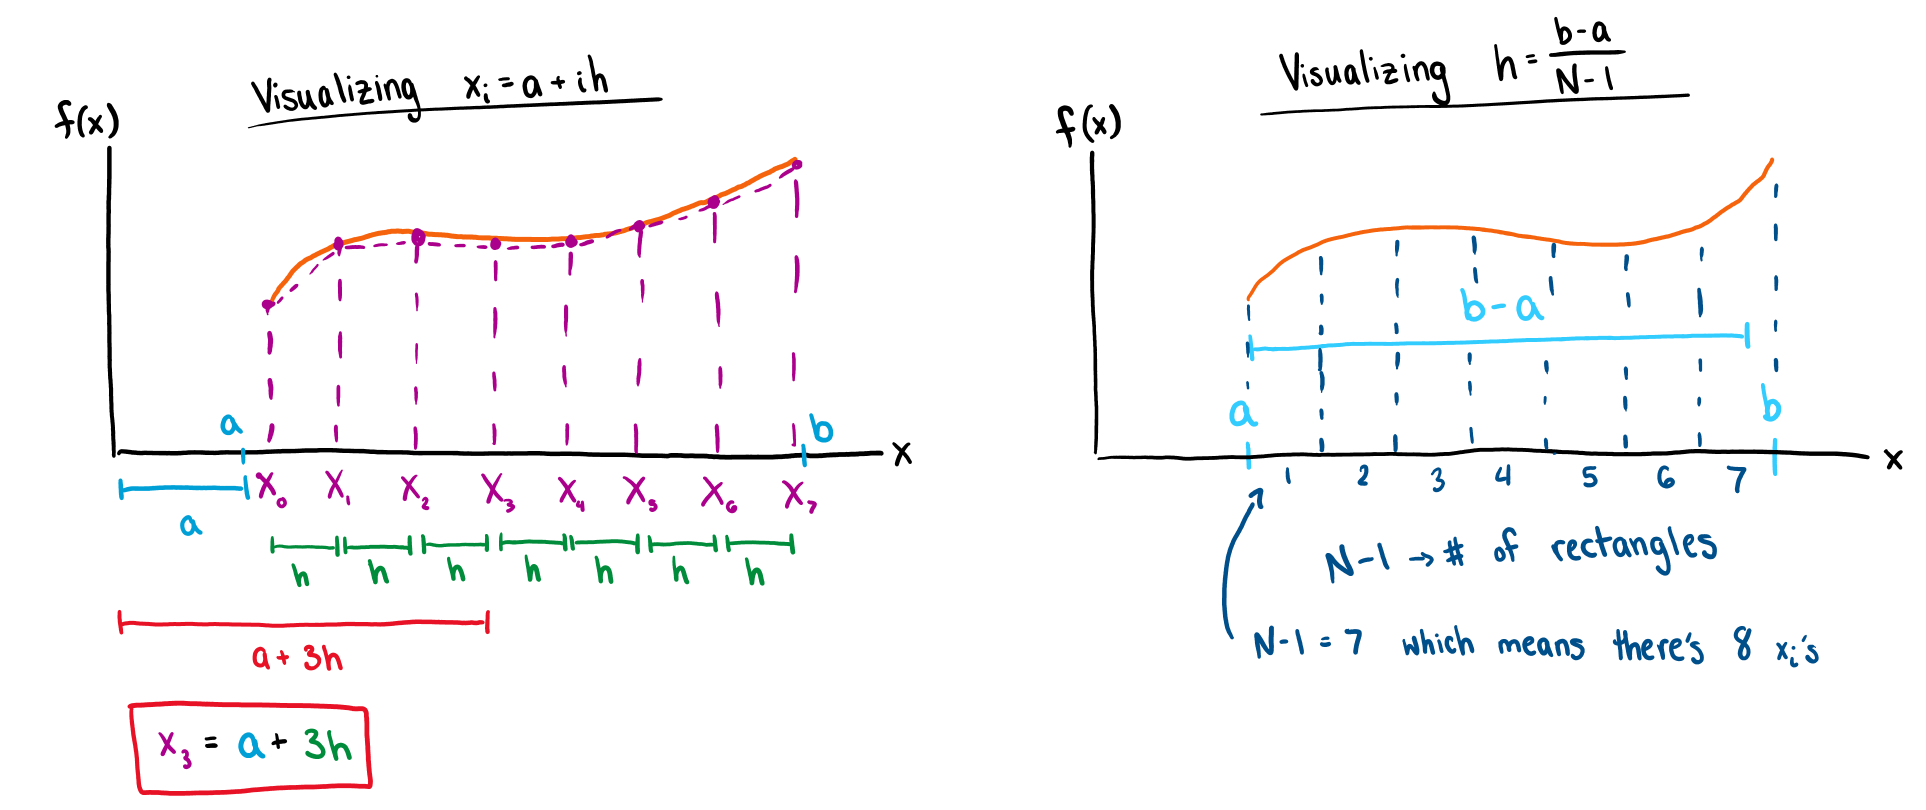 Visualizing xᵢ = a + ih
f(x)
a
b
x
X₀ X₁ X₂ X₃ X₄ X₅ X₆ X₇
a
h h h h h h h
a + 3h
x₃ = a + 3h
Visualizing h = \frac{b-a}{N-1}
f(x)
b - a
a
b
x
1 2 3 4 5 6 7
N-1 → # of rectangles
N-1 = 7 which means there's 8 xᵢ's